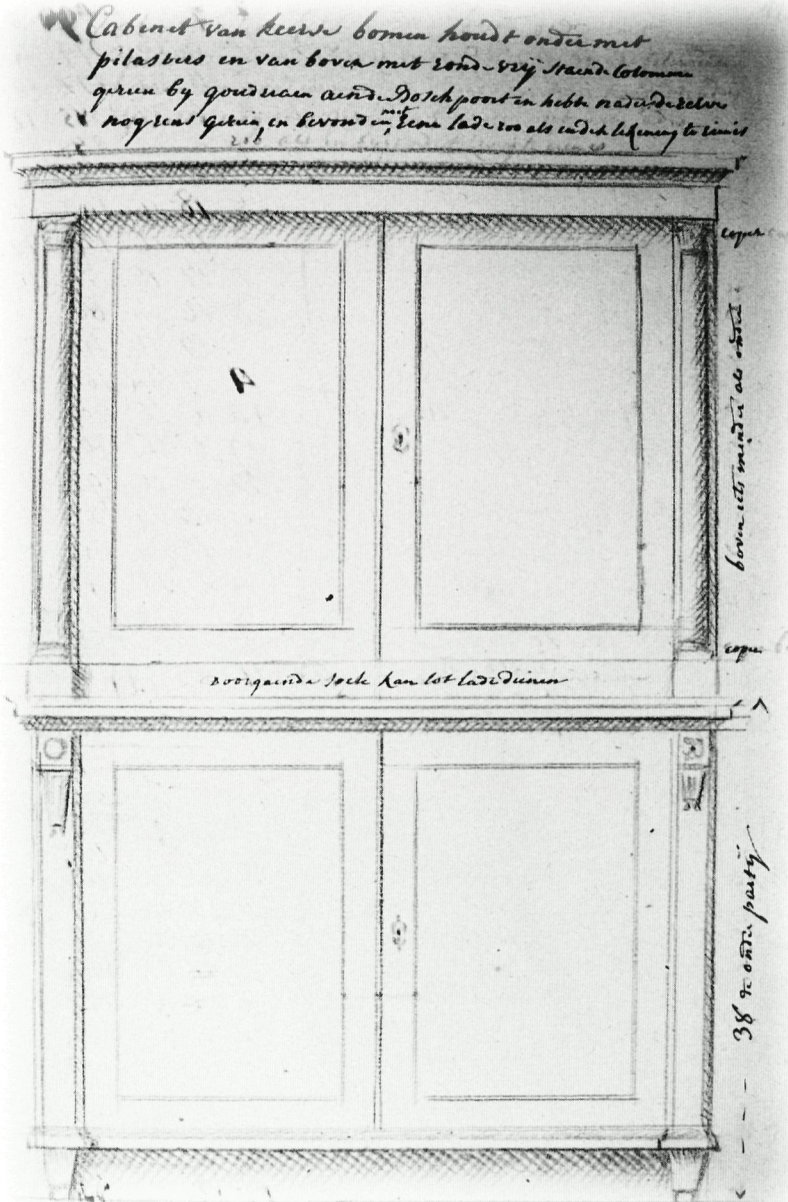 Cabinet van keerse bomen houdt onder met
pilasters en van boven met rond vrij staende Colomme
gesien by goudriaen aende Boschpoort en hebbe nader deselve
nog eens gesien, en bevonden, met eene lade zoo als in deze tekening te sien is
coper
boven iets minder als onder
coper
doorgaende sock kan tot lade dienen
38 de onder partij